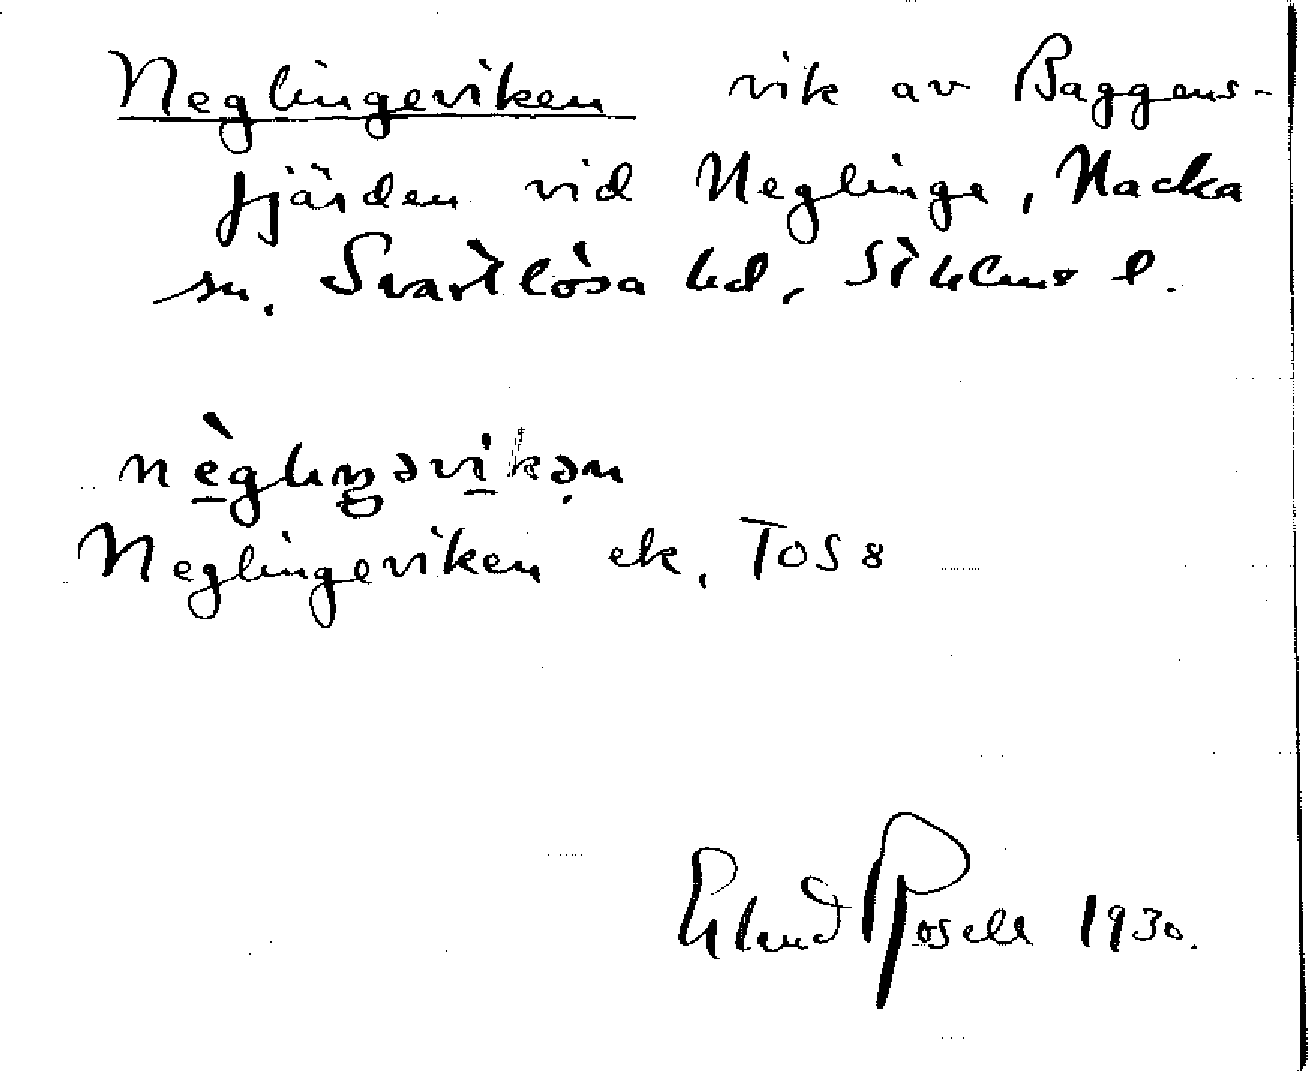 Neglingeviken vik av Baggens-
fjärden vid Neglinge, Nacka
sn. Svartlösa hd, Sthlms l.
nèglıŋəvikən
Neglingeviken ek. TOS 8
Erland Rosell 1930.